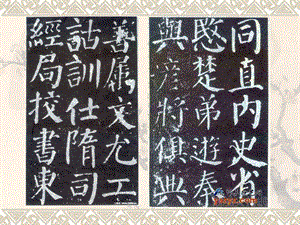 同直内史省
愍楚弟遊秦
與彦將俱典
善屬文尤工
詁訓仕隋司
經局挍書東